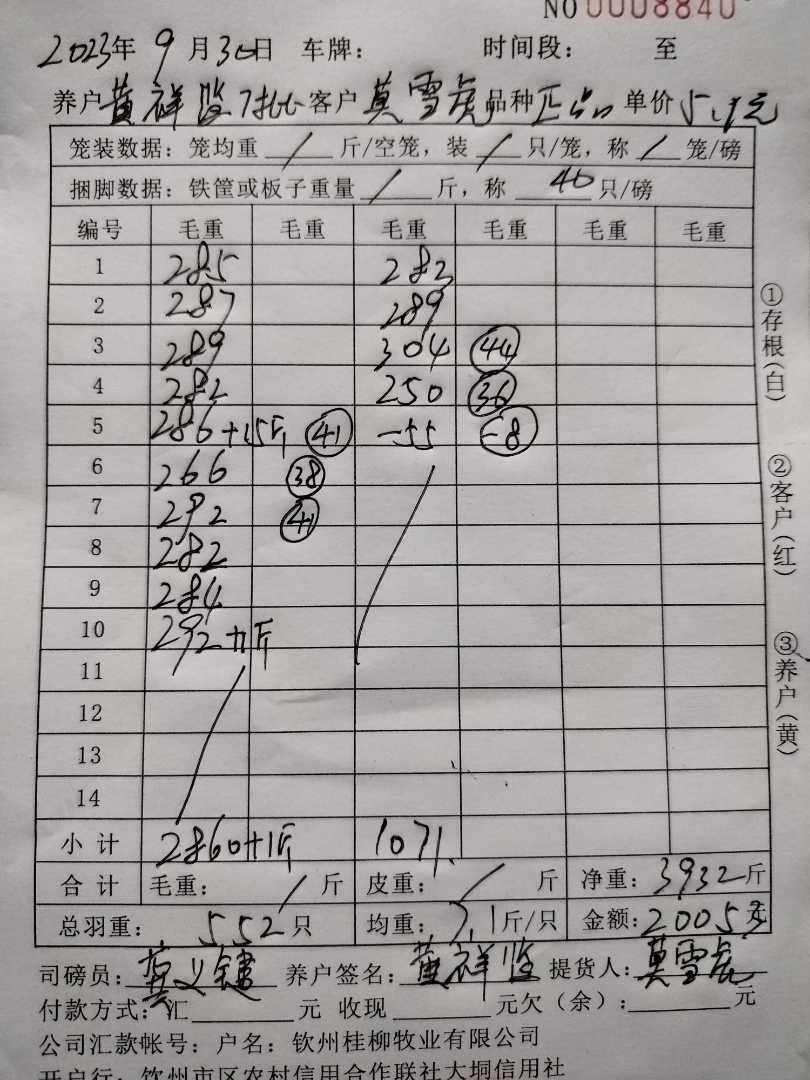 NO 0008840
2023年 9 月 30日 车牌: 时间段: 至
养户 黄祥 7批 客户 莫雪虎 品种 正品 单价 5.1元
笼装数据: 笼均重 / 斤/空笼, 装 / 只/笼, 称 / 笼/磅
捆脚数据: 铁筐或板子重量 / 斤, 称 40 只/磅
编号 毛重 毛重 毛重 毛重 毛重 毛重
1 285 282
2 287 289
3 289 304 44
4 282 250 36
5 286 41 -55 -8
6 266 38
7 292 41
8 282
9 284
10 292
11
12
13
14
小计 2860+1斤 1071
合计 毛重: / 斤 皮重: / 斤 净重: 3932 斤
总羽重: 552 只 均重: 7.1 斤/只 金额: 20053
司磅员: 莫义 养户签名: 黄祥 提货人: 莫雪虎
付款方式: 汇 元 收现 元欠(余): 元
公司汇款帐号: 户名: 钦州桂柳牧业有限公司
开户行: 钦州市区农村信用合作联社大垌信用社
①存根(白)
②客户(红)
③养户(黄)